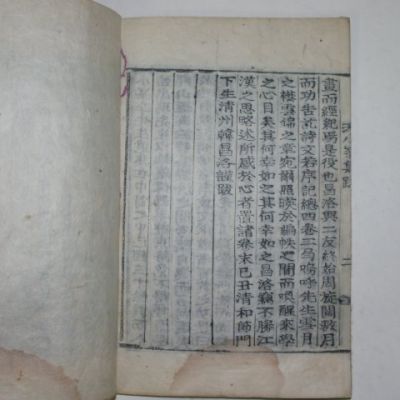 畫而經觀焉是役也昌洛與二友終始周旋閱數月
而功告訖詩文若序記總四卷二局嗚呼先生雲月
之襟雲錦之章宛爾照暎於編帙之間而喚醒來學
之心目矣其何幸如之其何幸如之昌洛竊不勝江
漢之思略述所感於心者置諸案末己丑清和節門
下生清州韓昌洛謹跋